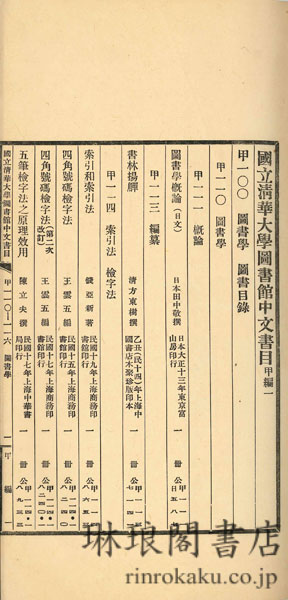 國立清華大學圖書館中文書目 甲編一
甲一〇〇 圖書學 圖書目錄
甲一一〇 圖書學
甲一一一 概論
圖書學概論(日文) 日本田中敬撰 日本大正十三年東京富山房印行 一冊
甲一一三 編纂
書林揚觶 清方東樹撰 乙丑(民十四)年上海中國書店木聚珍版印本 一冊
甲一一四 索引法 檢字法
索引和索引法 錢亞新著 民國十九年上海商務印書館印行 一冊
四角號碼檢字法 王雲五編 民國十五年上海商務印書館印行 一冊
四角號碼檢字法(第二次改訂) 王雲五編 民國十七年上海商務印書館印行 一冊
五筆檢字法之原理效用 陳立夫撰 民國十七年上海中華書局印行 一冊
國立清華大學圖書館中文書目 甲一一〇-一一六 圖書學 一 甲編一
琳琅閣書店
rinrokaku.co.jp